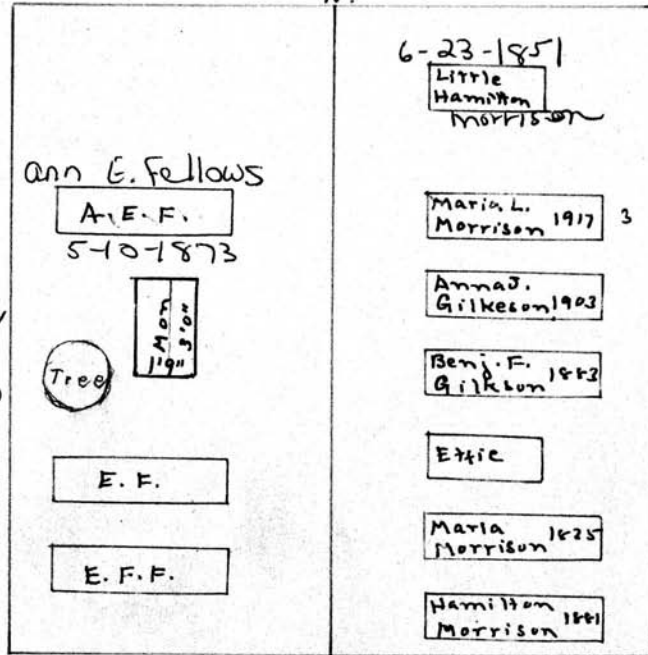 ann E. Fellows
A. E. F.
5-10-1873
Mon
1'9" 3'0"
Tree
E. F.
E. F. F.
6-23-1851
Little
Hamilton
Morrison
Maria L.
Morrison 1917 3
Anna J.
Gilkeson 1903
Benj. F.
Gilkson 1883
Effie
Maria
Morrison 1825
Hamilton
Morrison 1881